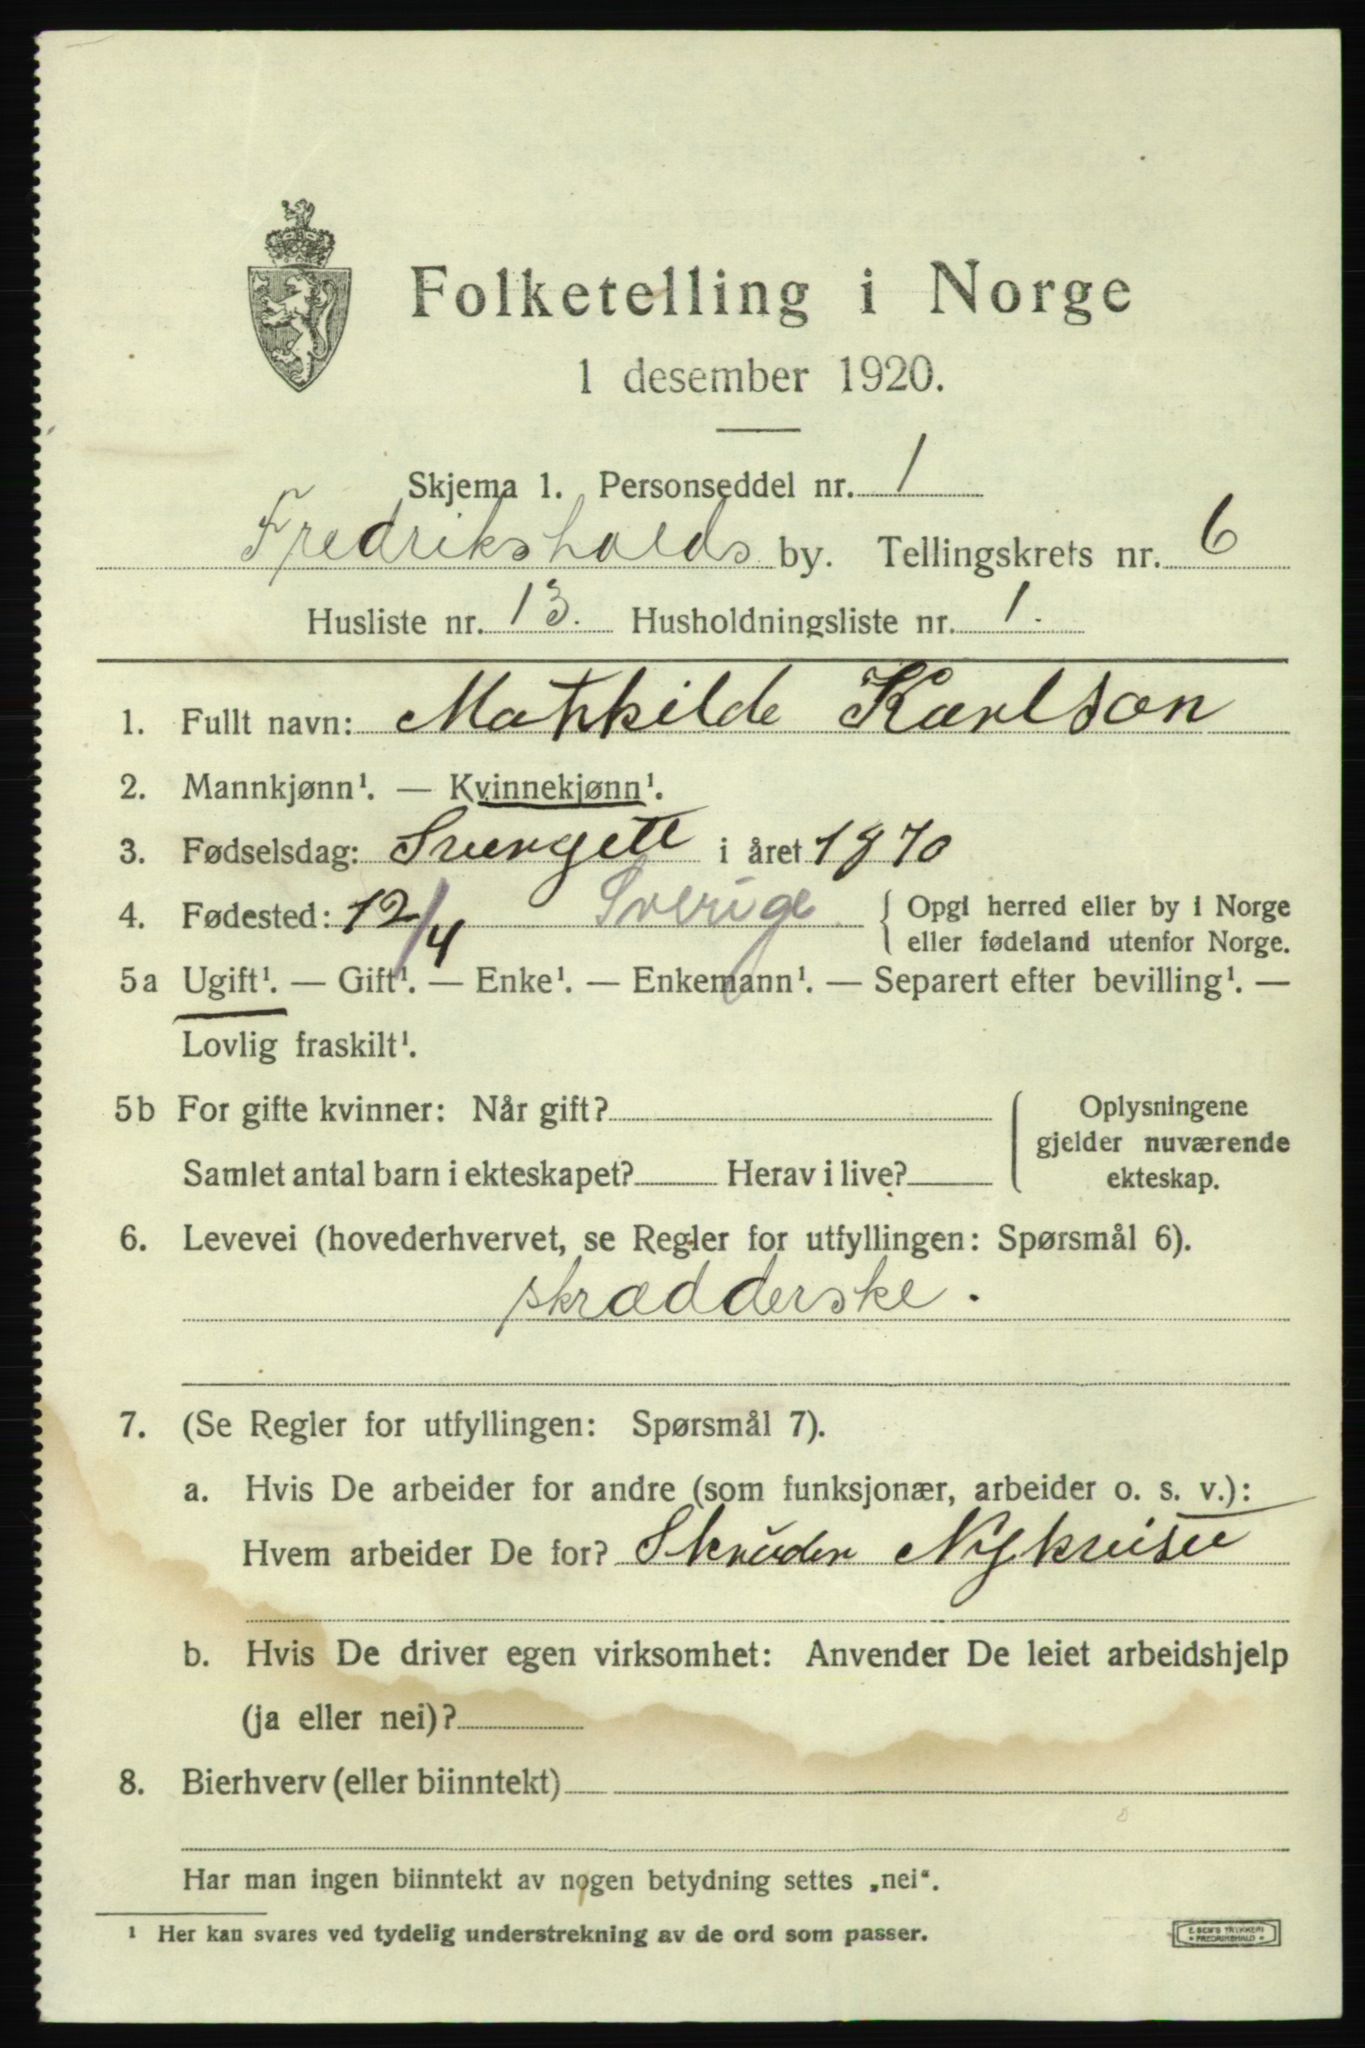 Folketelling i Norge
1 desember 1920.
Skjema 1. Personseddel nr. 1
Fredrikshalds by. Tellingskrets nr. 6
Husliste nr. 13. Husholdningsliste nr. 1.
1. Fullt navn: Mathilde Karlson
2. Mannkjønn¹. — Kvinnekjønn¹.
3. Fødselsdag: i året 1870
4. Fødested: 12/4 Sverige { Opgi herred eller by i Norge
eller fødeland utenfor Norge.
5a Ugift¹. — Gift¹. — Enke¹. — Enkemann¹. — Separert efter bevilling¹. —
Lovlig fraskilt¹.
5b For gifte kvinner: Når gift? { Oplysningene
gjelder nuværende
Samlet antal barn i ekteskapet? Herav i live? ekteskap.
6. Levevei (hovederhvervet, se Regler for utfyllingen: Spørsmål 6).
skrædderske.
7. (Se Regler for utfyllingen: Spørsmål 7).
a. Hvis De arbeider for andre (som funksjonær, arbeider o. s. v.):
Hvem arbeider De for?
b. Hvis De driver egen virksomhet: Anvender De leiet arbeidshjelp
(ja eller nei)?
8. Bierhverv (eller biinntekt)
Har man ingen biinntekt av nogen betydning settes „nei“.
¹ Her kan svares ved tydelig understrekning av de ord som passer.
E. SEM'S TRYKKERI
• FREDRIKSHALD •